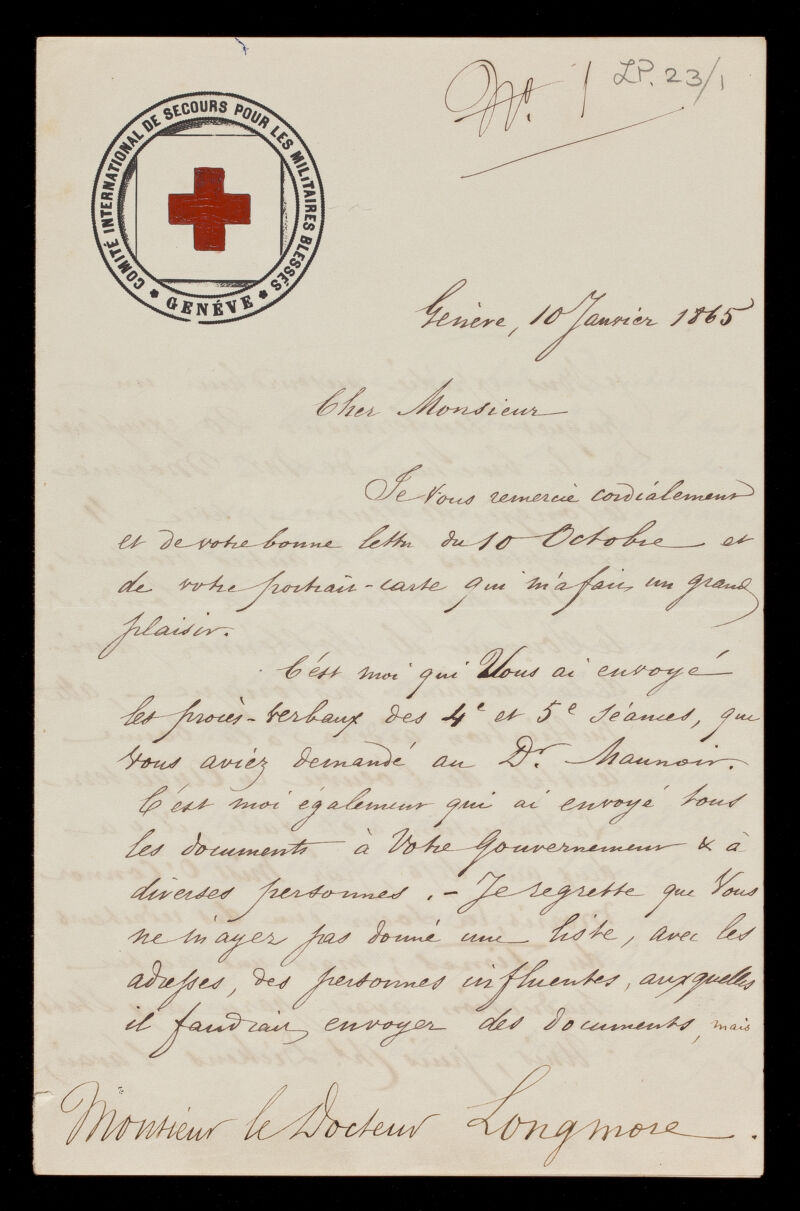 No. 1
LP. 23/1
COMITÉ INTERNATIONAL DE SECOURS POUR LES MILITAIRES BLESSÉS
* GENÉVE *
Genève, 10 Janvier 1865
Cher Monsieur
Je Vous remercie cordialement
et de votre bonne lettre du 10 Octobre et
de votre portrait-carte qui m'a fait un grand
plaisir.
C'est moi qui Vous ai envoyé
les procès-verbaux des 4e et 5e Séances, que
vous aviez demandé au Dr. Maunoir.
C'est moi également qui ai envoyé tous
les documents à Votre Gouvernement & à
diverses personnes. - Je regrette que Vous
ne m'ayez pas donné une liste, avec les
adresses, des personnes influentes, auxquelles
il faudrait envoyer des documents, mais
Monsieur le Docteur Longmore.